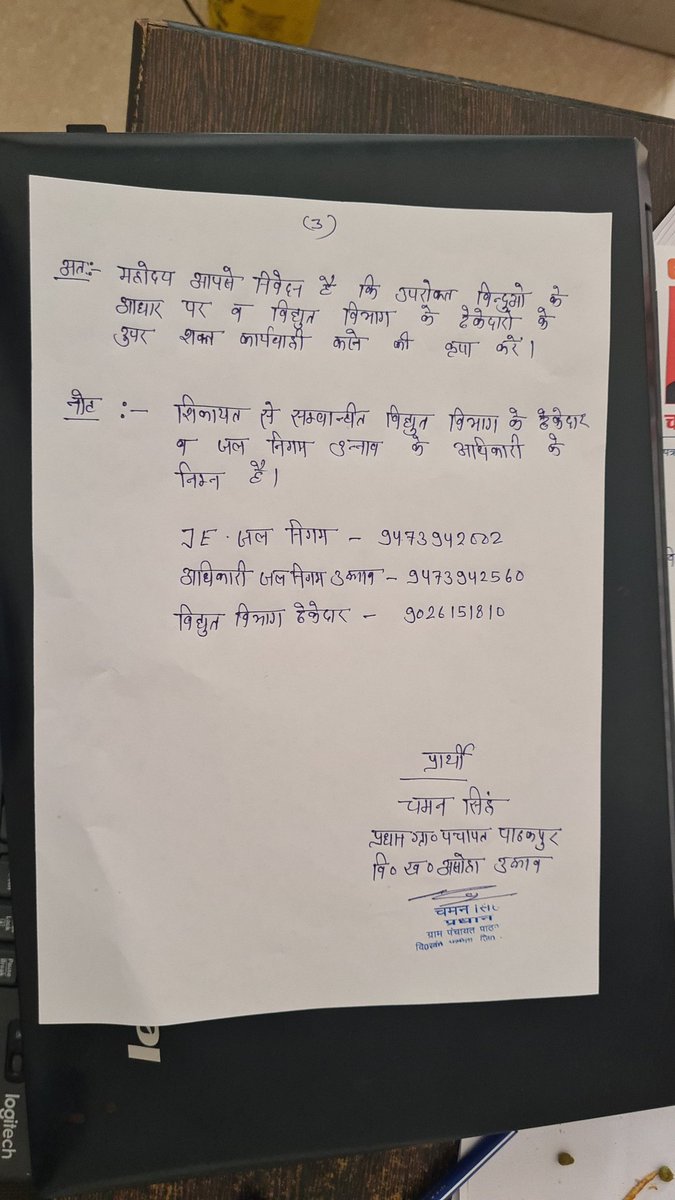 (3)
अतः- महोदय आपसे निवेदन है कि उपरोक्त विन्दुओ के
आधार पर व विद्युत विभाग के ठेकेदारो के
उपर शक्त कार्यवाही करने की कृपा करें।
नोट :- शिकायत से सम्वान्धीत विद्युत विभाग के ठेकेदार
व जल निगम उन्नाव के अधिकारी के
निम्न है।
JE. जल निगम - 9473942602
अधिकारी जल निगम उन्नाव - 9473942560
विद्युत विभाग ठेकेदार - 9026151810
प्रार्थी
चमन सिंह
प्रधान ग्रा० पंचायत पाठकपुर
वि० ख० असोहा उन्नाव
चमन
प्रधान
ग्राम पंचायत
logitech
Pause
Break